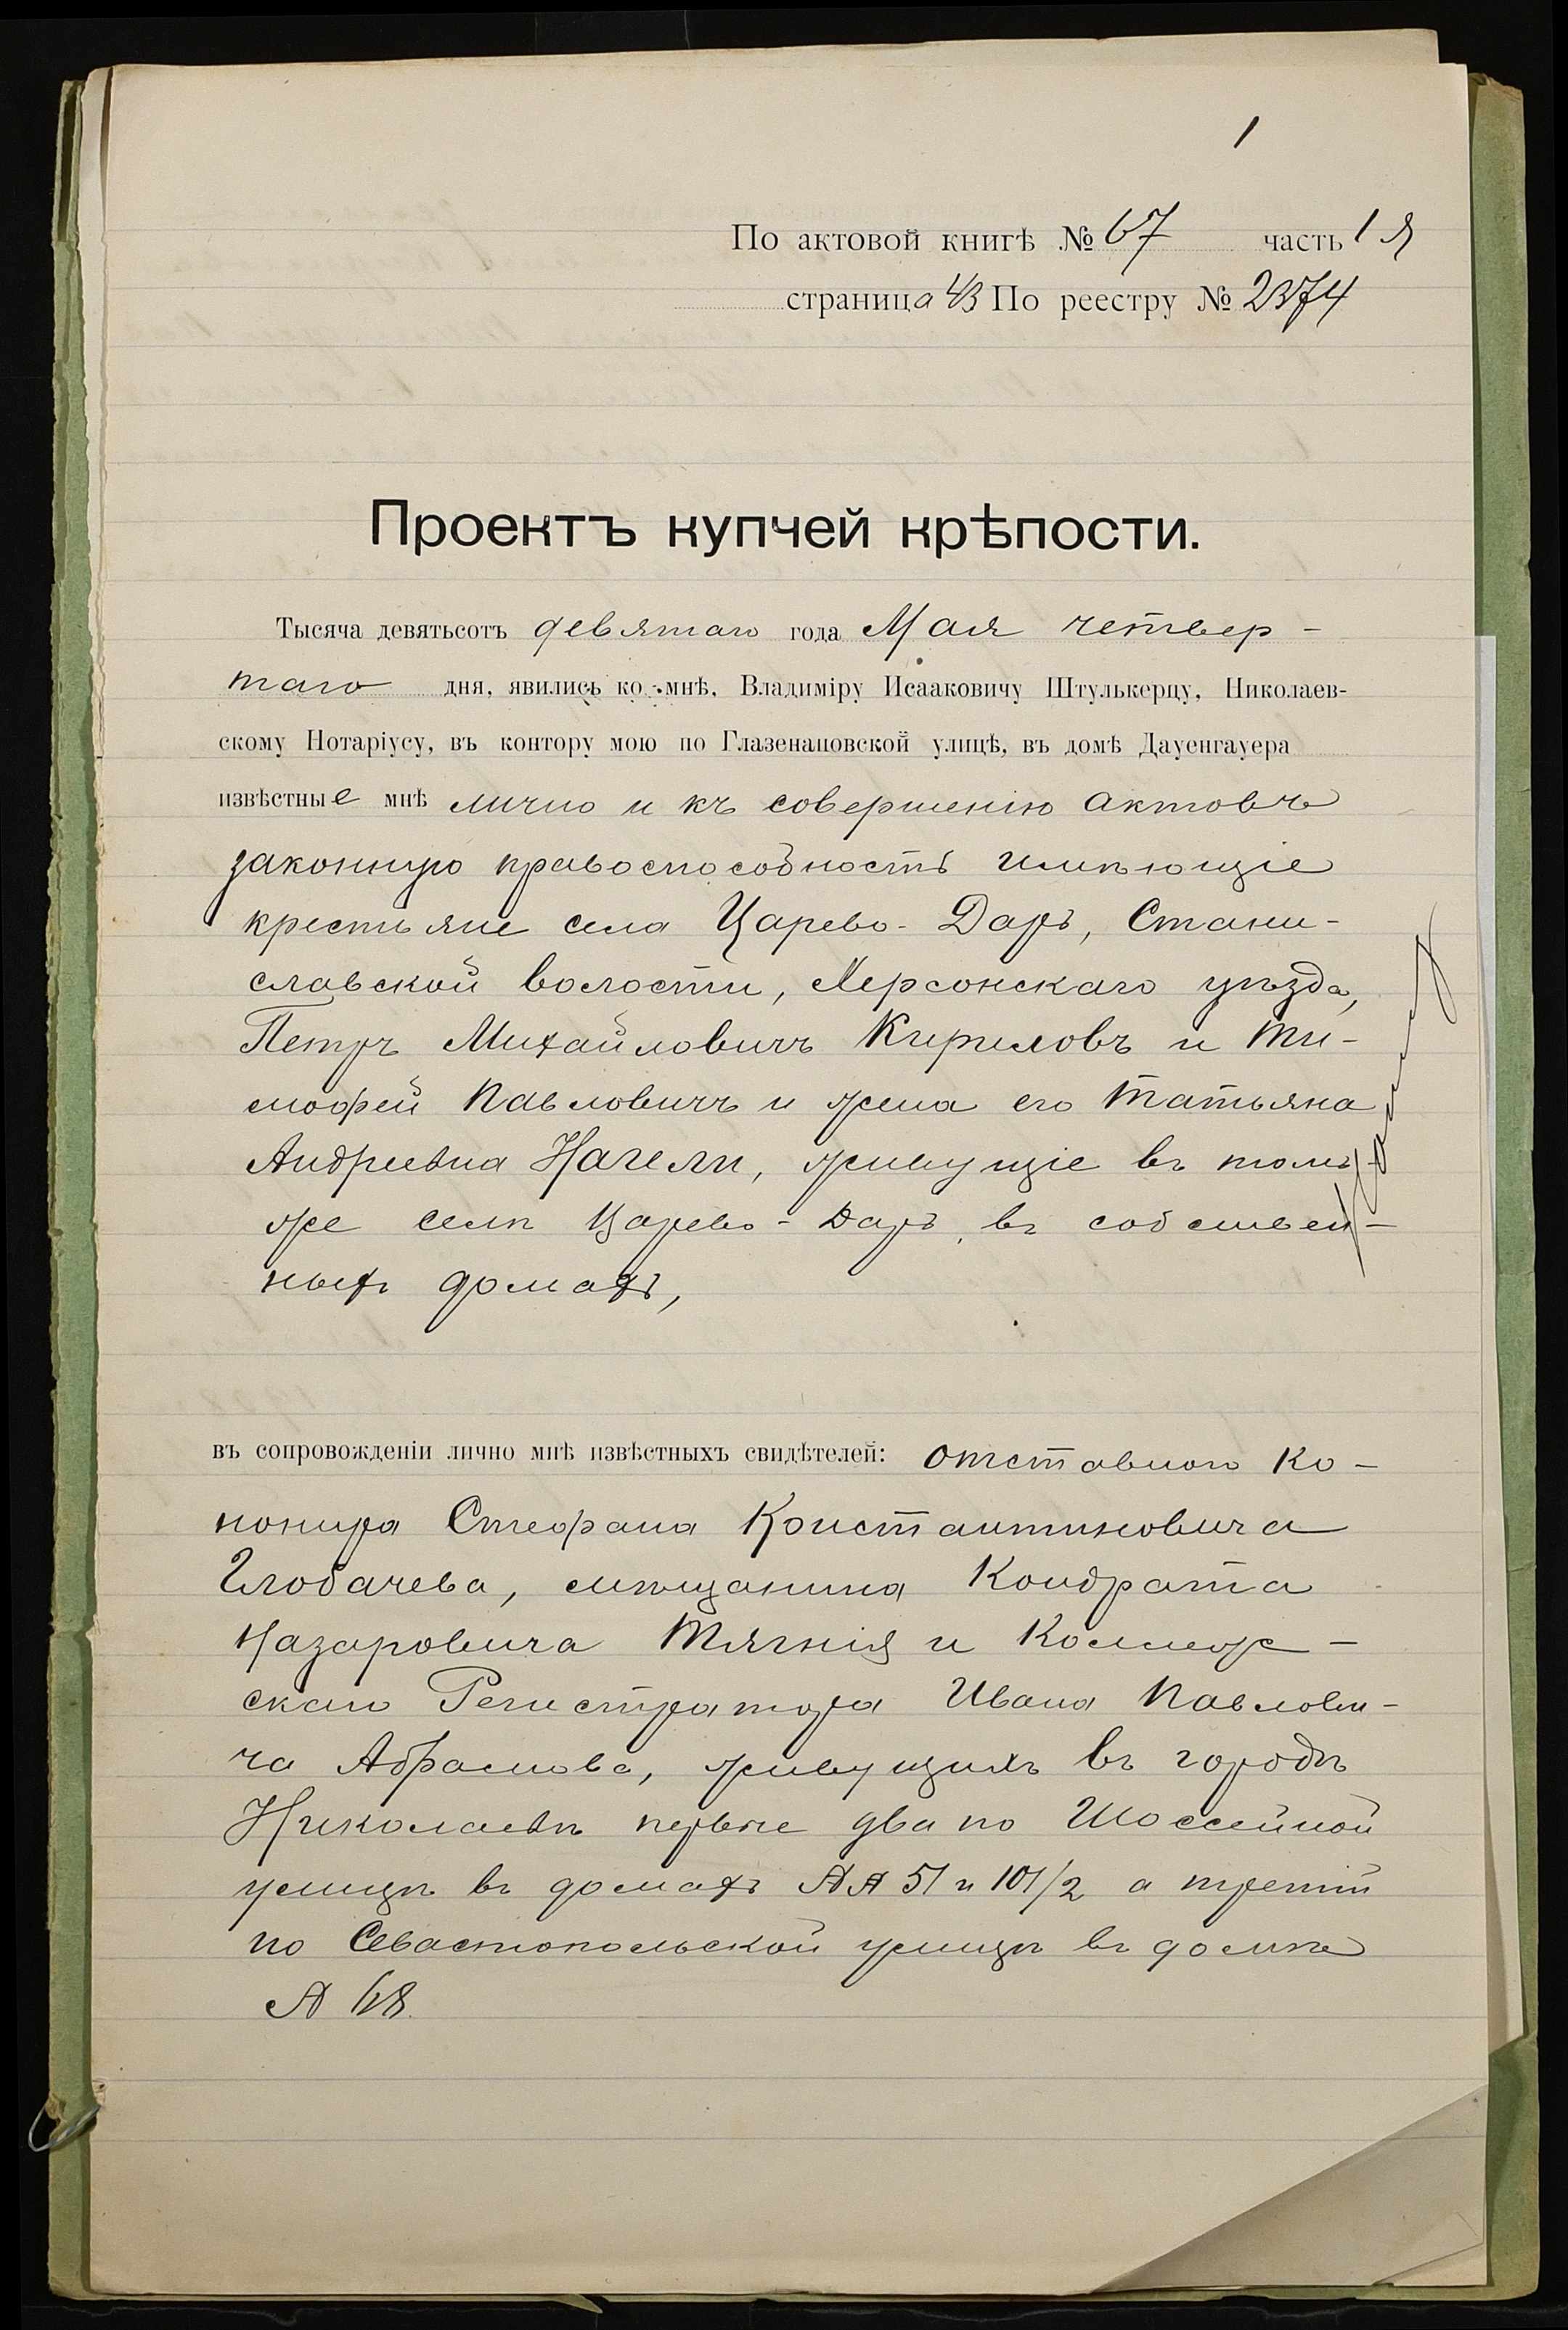 1
По актовой книгѣ № 67 часть 1 я
страница 43 По реестру № 2374
Проектъ купчей крѣпости.
Тысяча девятьсотъ девятаго года Мая четвер-
таго дня, явились ко мнѣ, Владиміру Исааковичу Штулькерцу, Николаев-
скому Нотаріусу, въ контору мою по Глазенаповской улицѣ, въ домѣ Дауенгауера
извѣстные мнѣ лично и къ совершенію актовъ
законную правоспособность имѣющіе
крестьяне села Царево-Даръ, Стани-
славской волости, Херсонскаго уѣзда,
Петръ Михайловичъ Кириловъ и Ти-
мофей Павловичъ и жена его Татьяна
Андреевна Нагели, живущіе въ томъ
же селѣ Царево-Даръ, въ собствен-
ныхъ домахъ,
въ сопровожденіи лично мнѣ извѣстныхъ свидѣтелей: отставного ка-
нонира Стефана Константиновича
Глобачева, мѣщанина Кондрата
Назаровича Тягнія и Коллеж-
скаго Регистратора Ивана Павлови-
ча Абрамова, живущихъ въ городѣ
Николаевѣ первые два по Шоссейной
улицѣ въ домахъ №№ 51 и 101/2 а третій
по Севастопольской улицѣ въ домѣ
№ 68.